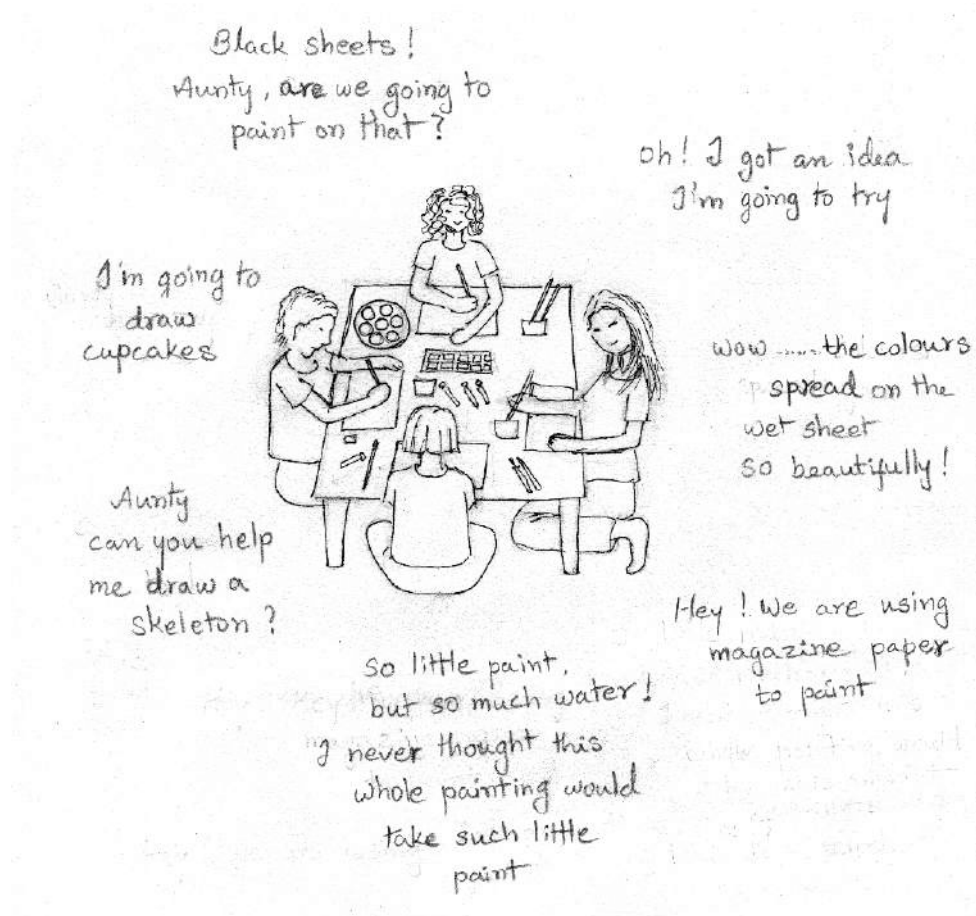 Black sheets!
Aunty, are we going to
paint on that?
Oh! I got an idea
I'm going to try
I'm going to
draw
cupcakes
wow ......the colours
spread on the
wet sheet
so beautifully!
Aunty
can you help
me draw a
skeleton?
Hey! We are using
magazine paper
to paint
So little paint,
but so much water!
I never thought this
whole painting would
take such little
paint